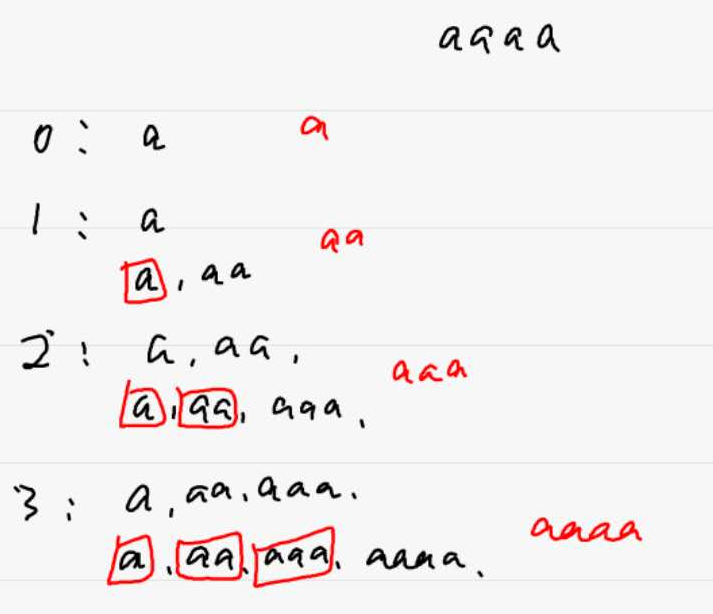 aaaa
0: a a
1: a
aa
a, aa
2: a, aa,
aaa
a, aa, aaa,
3: a, aa, aaa.
aaaa
a, aa, aaa, aaaa,